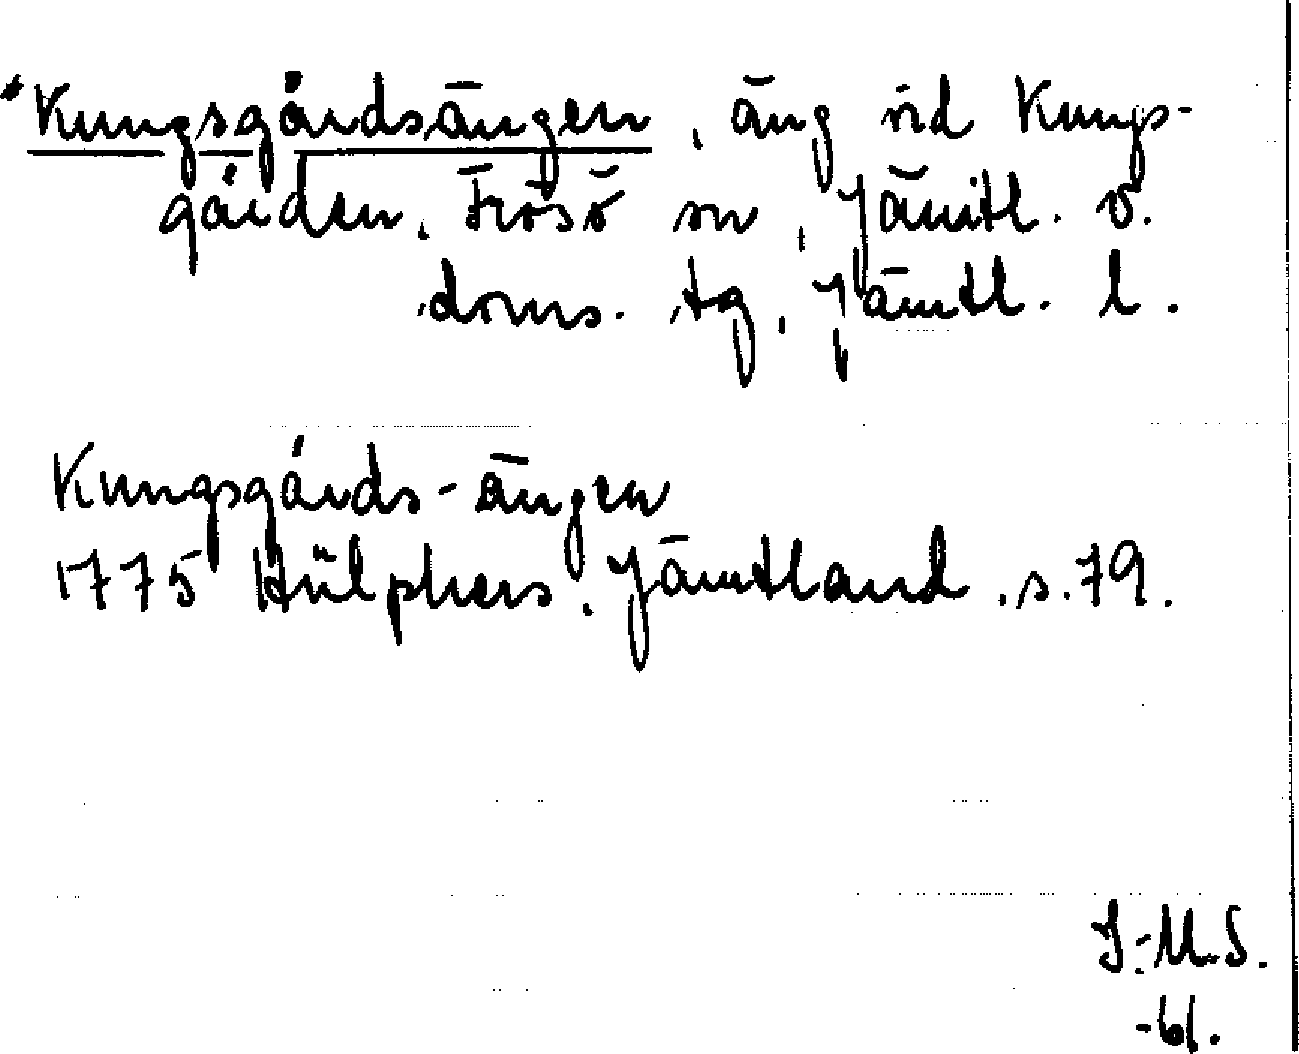 *Kungsgårdsängen, äng vid Kungs-
gården, Frösö sn, Jämtl. v.
doms. tg, Jämtl. l.
Kungsgårds-ängen
1775 Hülphers, Jämtland, s. 79.
I-M.S.
-61.